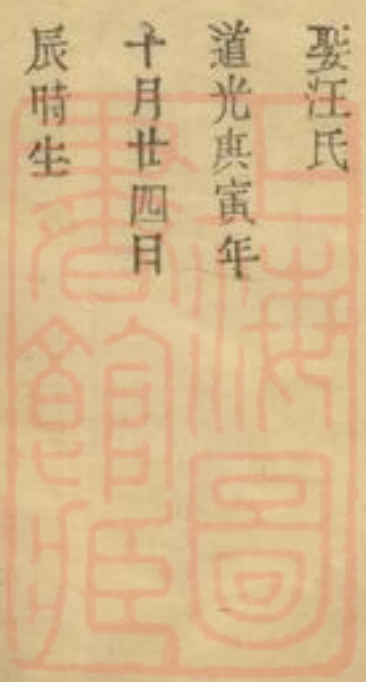 娶汪氏
道光庚寅年
十月廿四日
辰時生
上海圖
書館藏